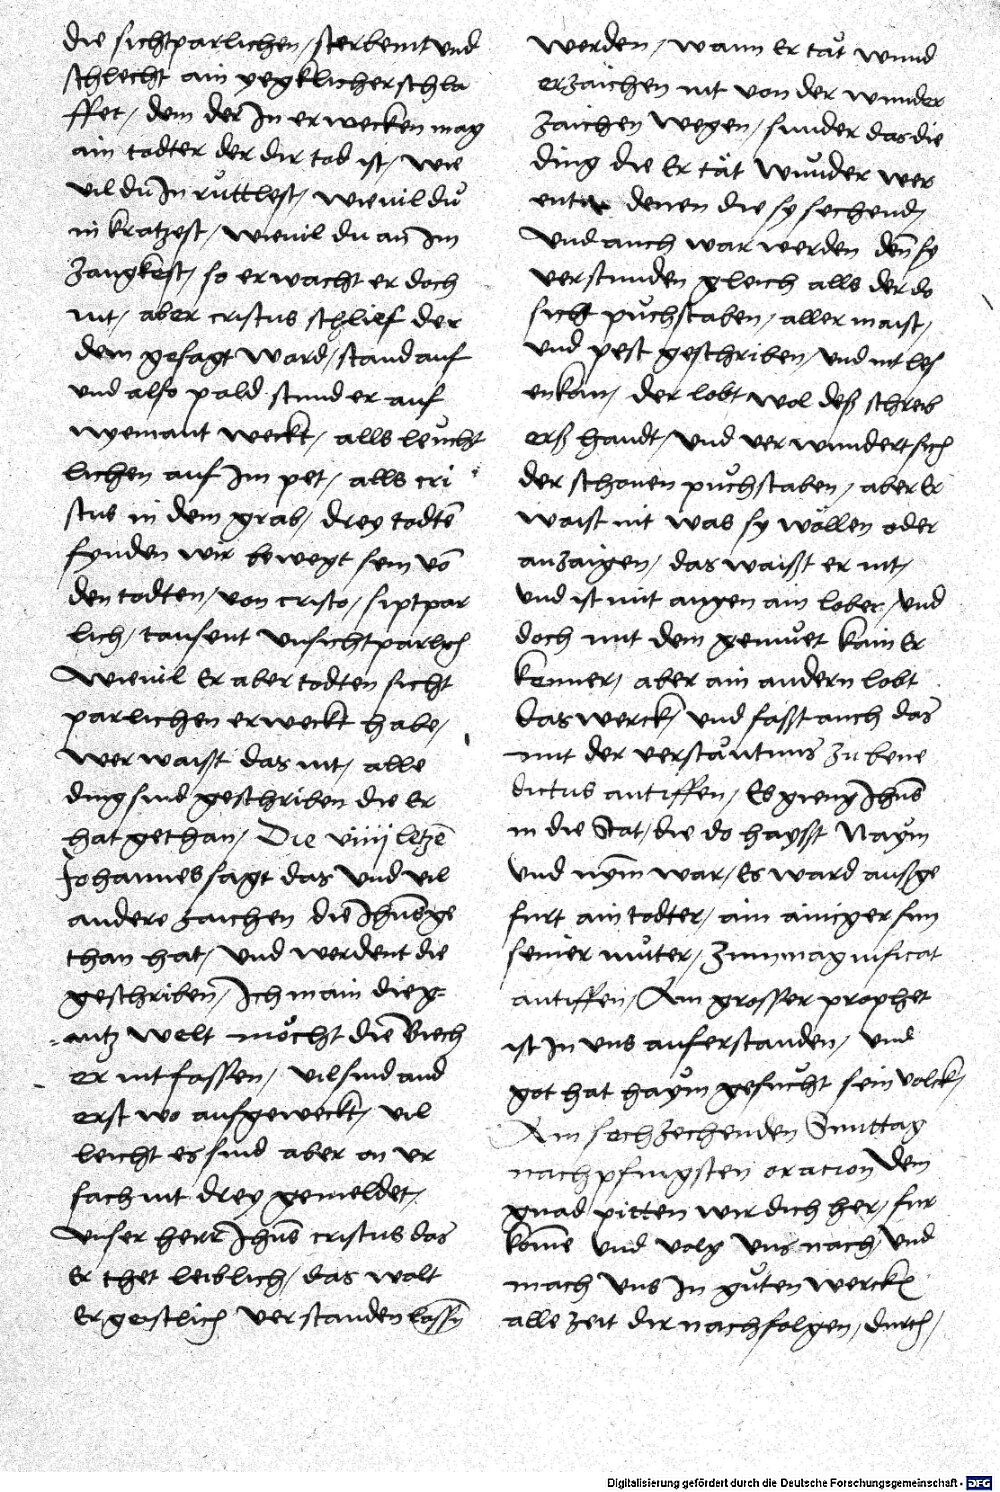 die sichtparlichen / sterbent und
schlecht ain yegklicher schla
ffet / dem der In erwecken mag
ain todter der dir tod ist / wie
vil du In růttlest / wievil dů
in kratzest / wievil du an Im
zangkest / so erwacht er doch
nit / aber cristus schlief der
dem gesagt ward / stand auf
und also pald stund er auf
nyemant weckt / alls leücht
lichen auf Im pet / alls cri
stus in dem grab / drey todtē
fynden wir bewegt sein võ
den todten / von cristo / siptpar
lich / tausent unsichtparlich
Wievil Er aber todten sicht
parlichen erweckt habe /
wer waisst das nit / alle
ding sind geschriben die Er
hat gethan / Die viiij letzē
Johannes sagt das und vil
andere zaichen die Jhūs ge
than hat / und werdent die
geschriben / Ich main die g=
=antz welt möcht die Biech
er nit fassen / vil sind and
erst wo aufgeweckt / vil
leicht es sind aber on ur
sach nit drey gemeldet /
unser herr Jhūs cristus das
Er thet leiblich / das wolt
Er geistlich verstanden lassn
werden / wann Er tät wund
erzaichen nit von der wunder
zaichen wegen / sunder das die
ding die Er tät wunder wer
ent denen die sy sechend /
und auch war werden den sy
verstunden gleich alls der do
sicht půchstaben / aller maist /
und pest geschriben / und nit les
en kan / der lobt wol deß schreib
erß handt / und verwundert sich
der schonen půchstaben / aber Er
waist nit was sy wöllen oder
anzaigen / das waisst er nit /
und ist mit augen ain lober / und
doch mit dem gemuet kain Er
kenner / aber ain andern lobt
das werck / und fasst auch das
mit der verstäntnus zu bene
dictus antiffen / Es gieng Jhūs
in die Stat / die do haysst Naym
und nym war / Es ward aufge
furt ain todter / ain ainiger sun
seiner můter / zum magnificat
antiffen / Ain grosser prophet
ist In uns auferstanden / und
got hat haym gesucht sein volck /
Am sechzechenden Sunttag
nach pfingsten oracion Dein
gnad pitten wir dich her / fur
kome und volg uns nach / und
mach uns In gůten wercken
alle zeit dir nachfolgen / durch /
Digitalisierung gefördert durch die Deutsche Forschungsgemeinschaft - DFG